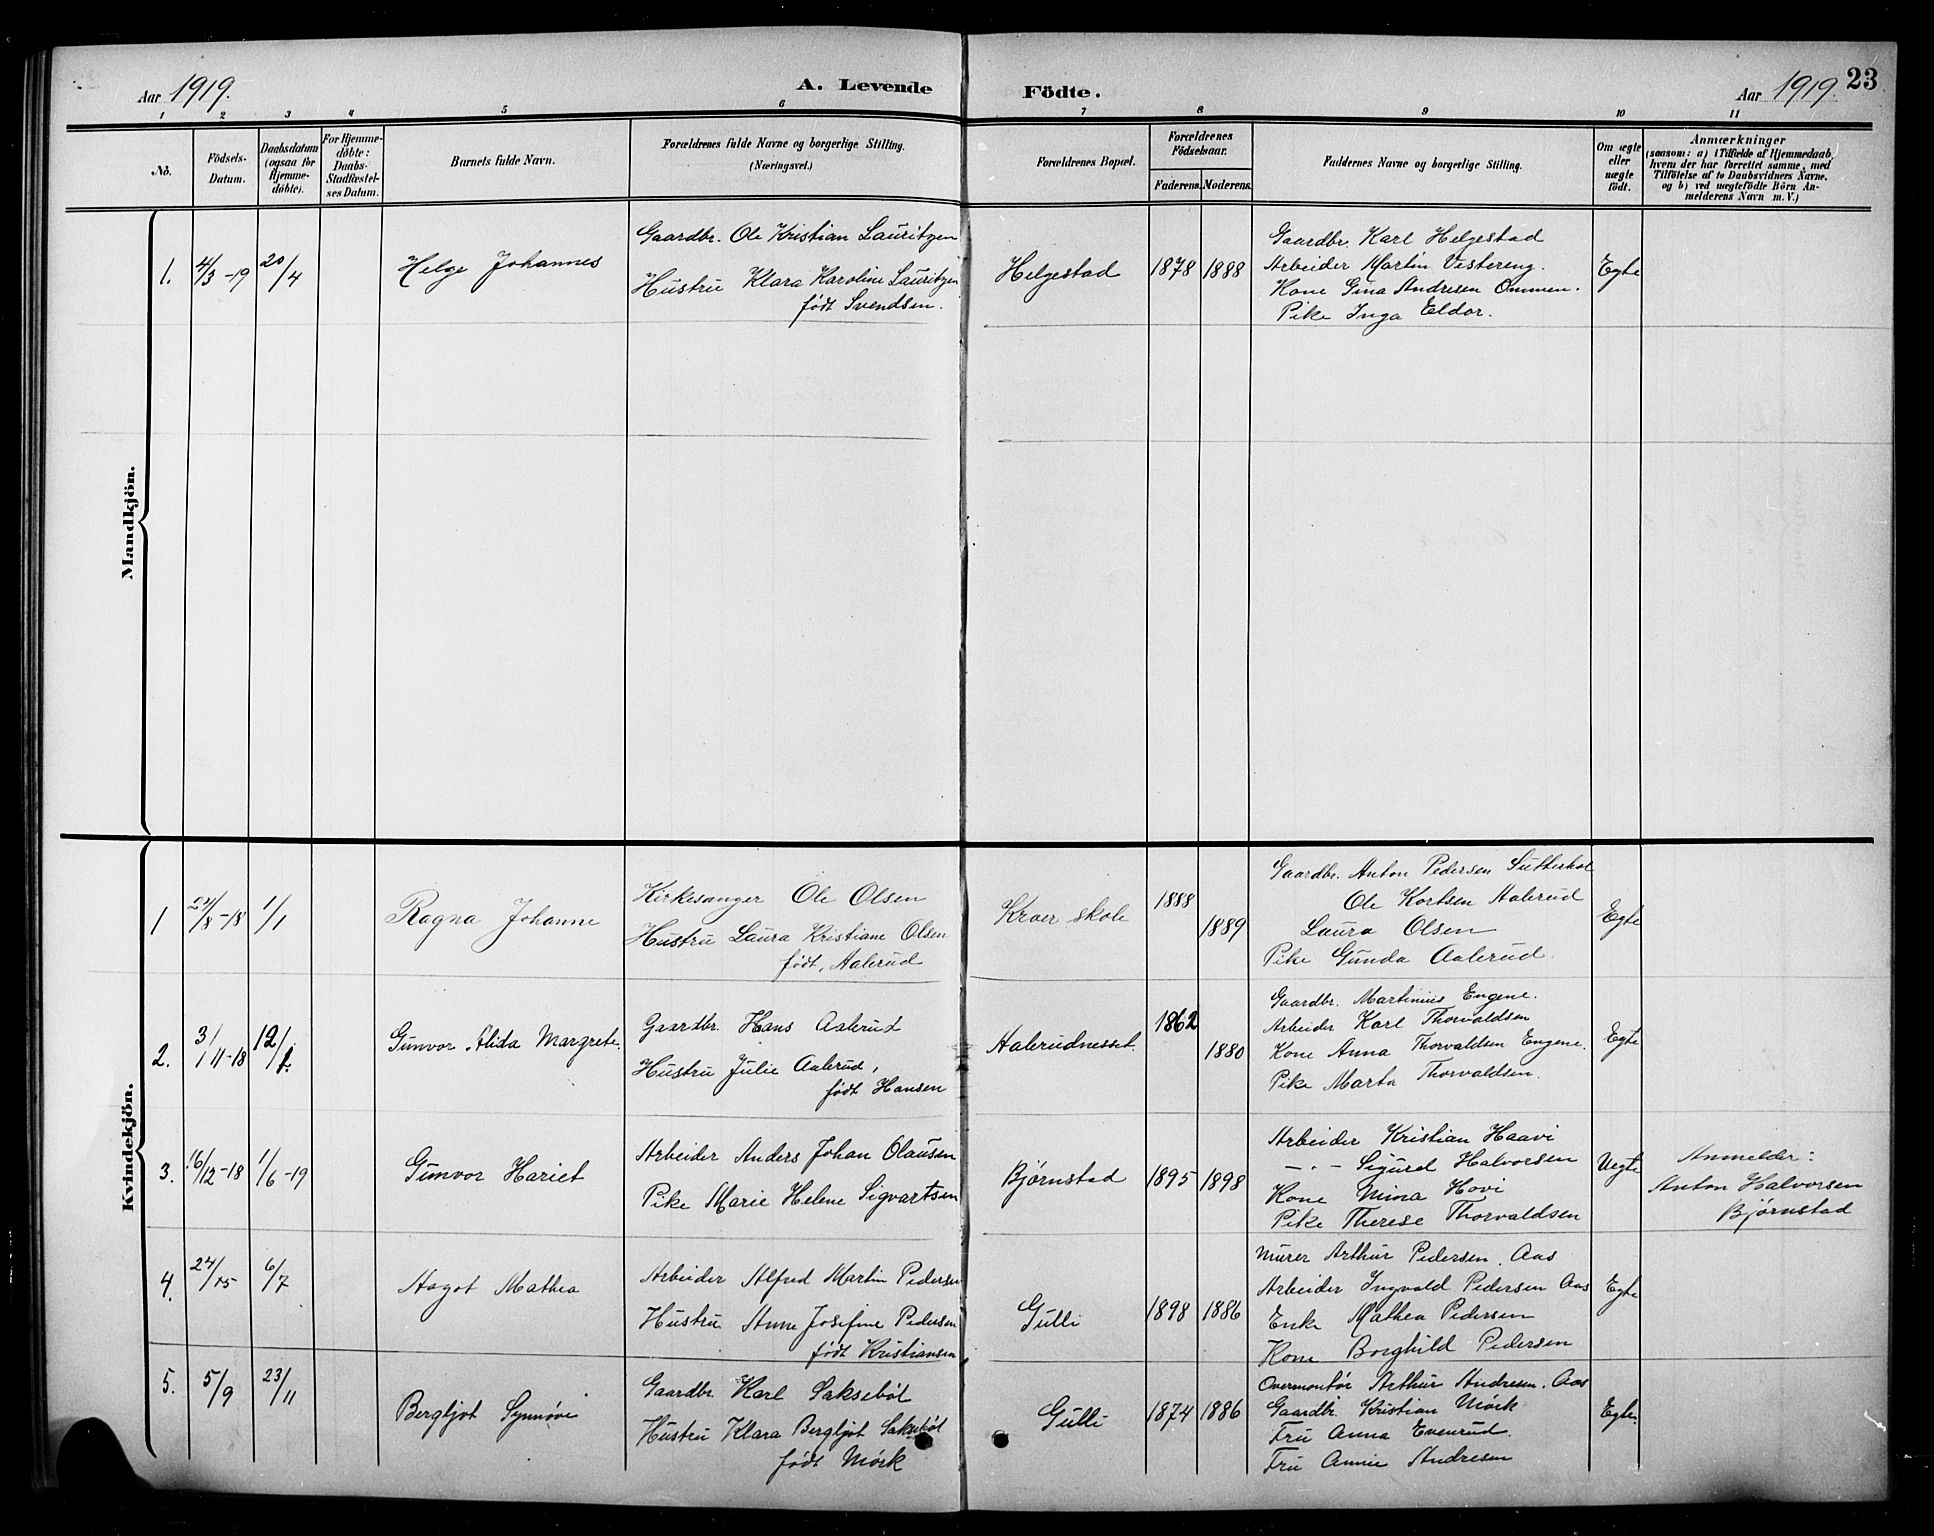 Aar 1919.
A. Levende Födte.
Aar 1919.
23
1 2 3 4 5 6 7 8 9 10 11
No.
Födsels-Datum.
Daabsdatum (ogsaa for Hjemmedöbte).
For Hjemmedöbte: Daabs-Stadfæstelses Datum.
Barnets fulde Navn.
Forældrenes fulde Navne og borgerlige Stilling. (Næringsvei.)
Forældrenes Bopæl.
Forældrenes Födselsaar.
Faderens. Moderens.
Faddernes Navne og borgerlige Stilling.
Om ægte eller uægte födt.
Anmærkninger
(saasom: a) i Tilfælde af Hjemmedaab,
hvem der har forrettet samme, med
Tilföielse af to Daabsvidners Navne,
og b) ved uægtefödte Börn An-
melderens Navn m. V.)
Mandkjön.
1. 4/3-19 20/4 Helge Johannes
Gaardbr. Ole Kristian Lauritzen
Hustru Klara Karoline Lauritzen
født Svendsen.
Helgestad 1878 1888
Gaardbr. Karl Helgestad
Arbeider Martin Vestereng.
Kone Gina Andresen Ommen.
Pike Inga Eldor.
Egte
Kvindekjön.
1 /8-18 1/1 Ragna Johanne
Kirkesanger Ole Olsen
Hustru Laura Kristiane Olsen
født, Aalerud
Kroer skole 1888 1889
Gaardbr. Anton Pedersen
Ole Kortsen Aalerud
Laura Olsen
Pike Gunda Aalerud.
Egte
2. 3/11-18 12/1. Gunvor Alida Margrete.
Gaardbr. Hans Aalerud
Hustru Julie Aalerud,
født Hansen
Aalerudnesset. 1862 1880
Gaardbr. Martinius Engene.
Arbeider Karl Thorvaldsen
Kone Anna Thorvaldsen Engene.
Pike Marta Thorvaldsen.
Egte
3. 16/12-18 1/6-19 Gunvor Hariet
Arbeider Anders Johan Olausen
Pike Marie Helene Sigvartsen
Bjørnstad 1895 1898
Arbeider Kristian Haavi
— " — Sigurd Halvorsen
Kone Mina Hovi
Pike Therese Thorvaldsen
Uegte
Anmelder:
Anton Halvorsen
Bjørnstad
4. 24/5 6/7 Aagot Mathea
Arbeider Alfred Martin Pedersen
Hustru Anna Josefine Pedersen
født Kristiansen
Gulli 1898 1886
Murer Arthur Pedersen. Aas
Arbeider Ingvald Pedersen Aas
Enke Mathea Pedersen
Kone Borghild Pedersen
Egte
5. 5/9 23/11 Bergljot Synnøve
Gaardbr. Karl Saksebøl
Hustru Klara Bergljot Saksebøl
født Mørk
Gulli 1874 1886
Overmontør Arthur Andresen. Aas
Gaardbr. Kristian Mørk
Fru Anna Evenrud.
Fru Annie Andresen
Egte